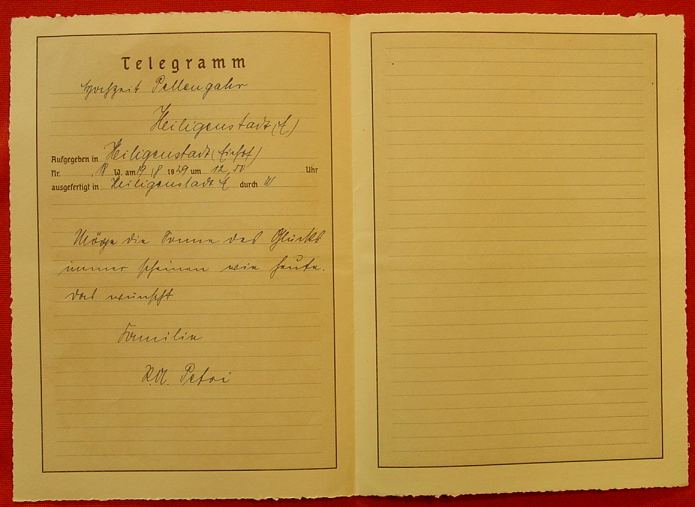 Telegramm
Hochzeit Pellengahr
Heiligenstadt (E)
Aufgegeben in Heiligenstadt (Eichsf)
Nr. W. am 19/8 1939 um 12,50 Uhr
ausgefertigt in Heiligenstadt E durch
Möge die Sonne des Glücks
immer scheinen wie heute.
das wünscht
Familie
Petri